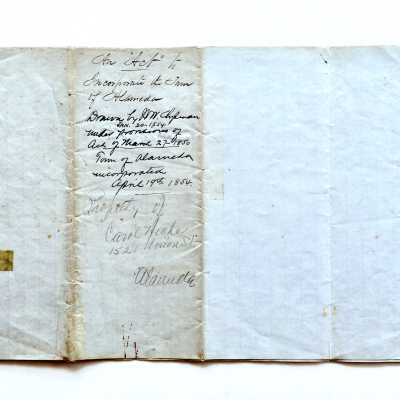 An "Act" to
Incorporate the Town
of Alameda
Drawn by W.W. Chipman
Jan. 20-1854
under provisions of
Act of March 27th 1850
Town of Alameda
incorporated
April 19th 1854.
Property of
Carol
152 Union St
Alameda